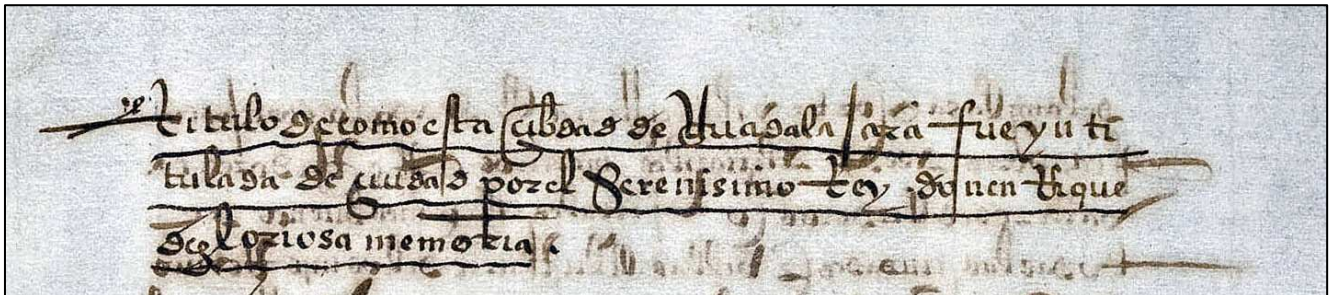 Titulo de como esta cibdad de Guadalajara fue yn ti
tulada de ciudad por el Serenissimo Rey don enRique
de gloriosa memoria.